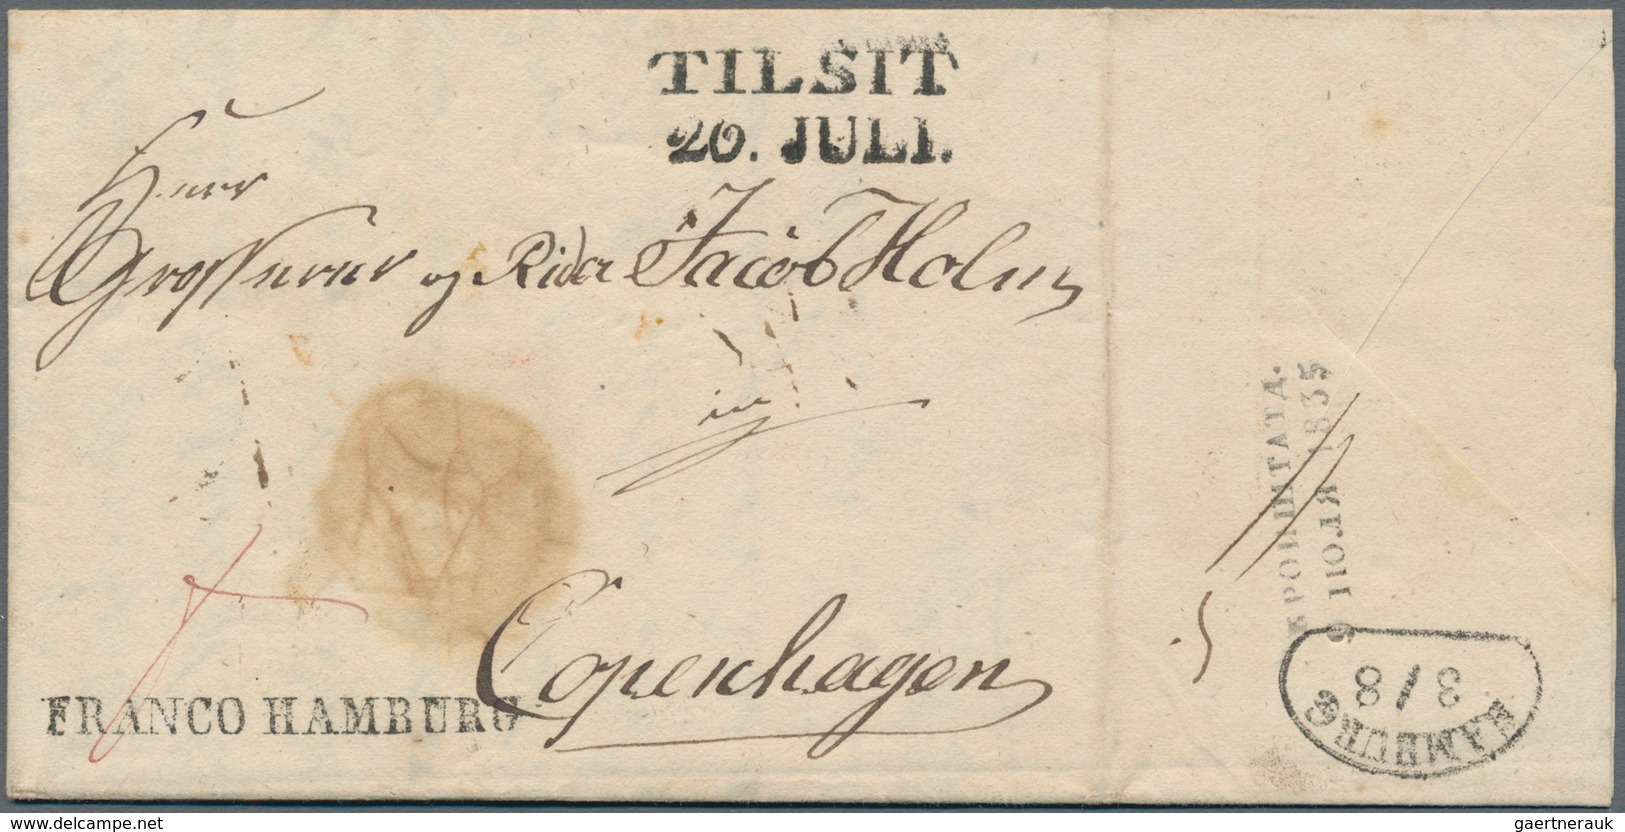 TILSIT
26. JULI.
Herr
Grosserer og Rider Jacob Holm
in
Copenhagen
FRANCO HAMBURG
КРОНШТАТА.
9 ІЮЛЯ 1835
HAMBURG
3/8
delcampe.net
gaertnerauk